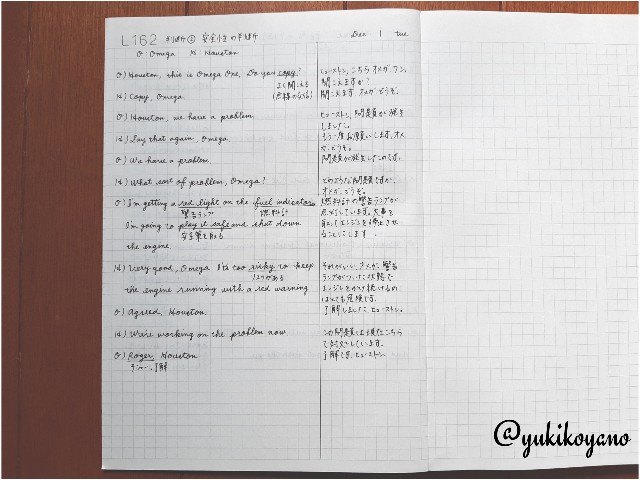 L162 判断② 安全性の判断 Dec 1 tue
O: Omega H: Houston
O) Houston, this is Omega One. Do you copy?
よく聞こえる
H) Copy, Omega.
O) Houston, we have a problem.
H) Say that again, Omega.
O) We have a problem.
H) What sort of problem, Omega?
O) I'm getting a red light on the fuel indicator.
警告ランプ 燃料計
I'm going to play it safe and shut down
安全策を取る
the engine.
H) Very good, Omega. It's too risky to keep
リスクがある
the engine running with a red warning
O) Agreed, Houston.
H) We're working on the problem now.
O) Roger, Houston.
ラジャー、了解
ヒューストン、こちらオメガ、ワン。
聞こえますか?
聞こえます、オメガ、どうぞ。
ヒューストン、問題が発生
しました。
もう一度お願いします、オメ
ガ、どうぞ。
問題が発生したのです。
どのような問題ですか、
オメガ、どうぞ。
燃料計の警告ランプが
点灯しています。大事を
取ってエンジンを停止させ
ることにします。
それがいい、オメガ。警告
ランプがついた状態で
エンジンをかけ続けるの
はとても危険です。
了解しました、ヒューストン。
この問題には現在こちら
で対処しています。
了解です、ヒューストン
@yukikoyano